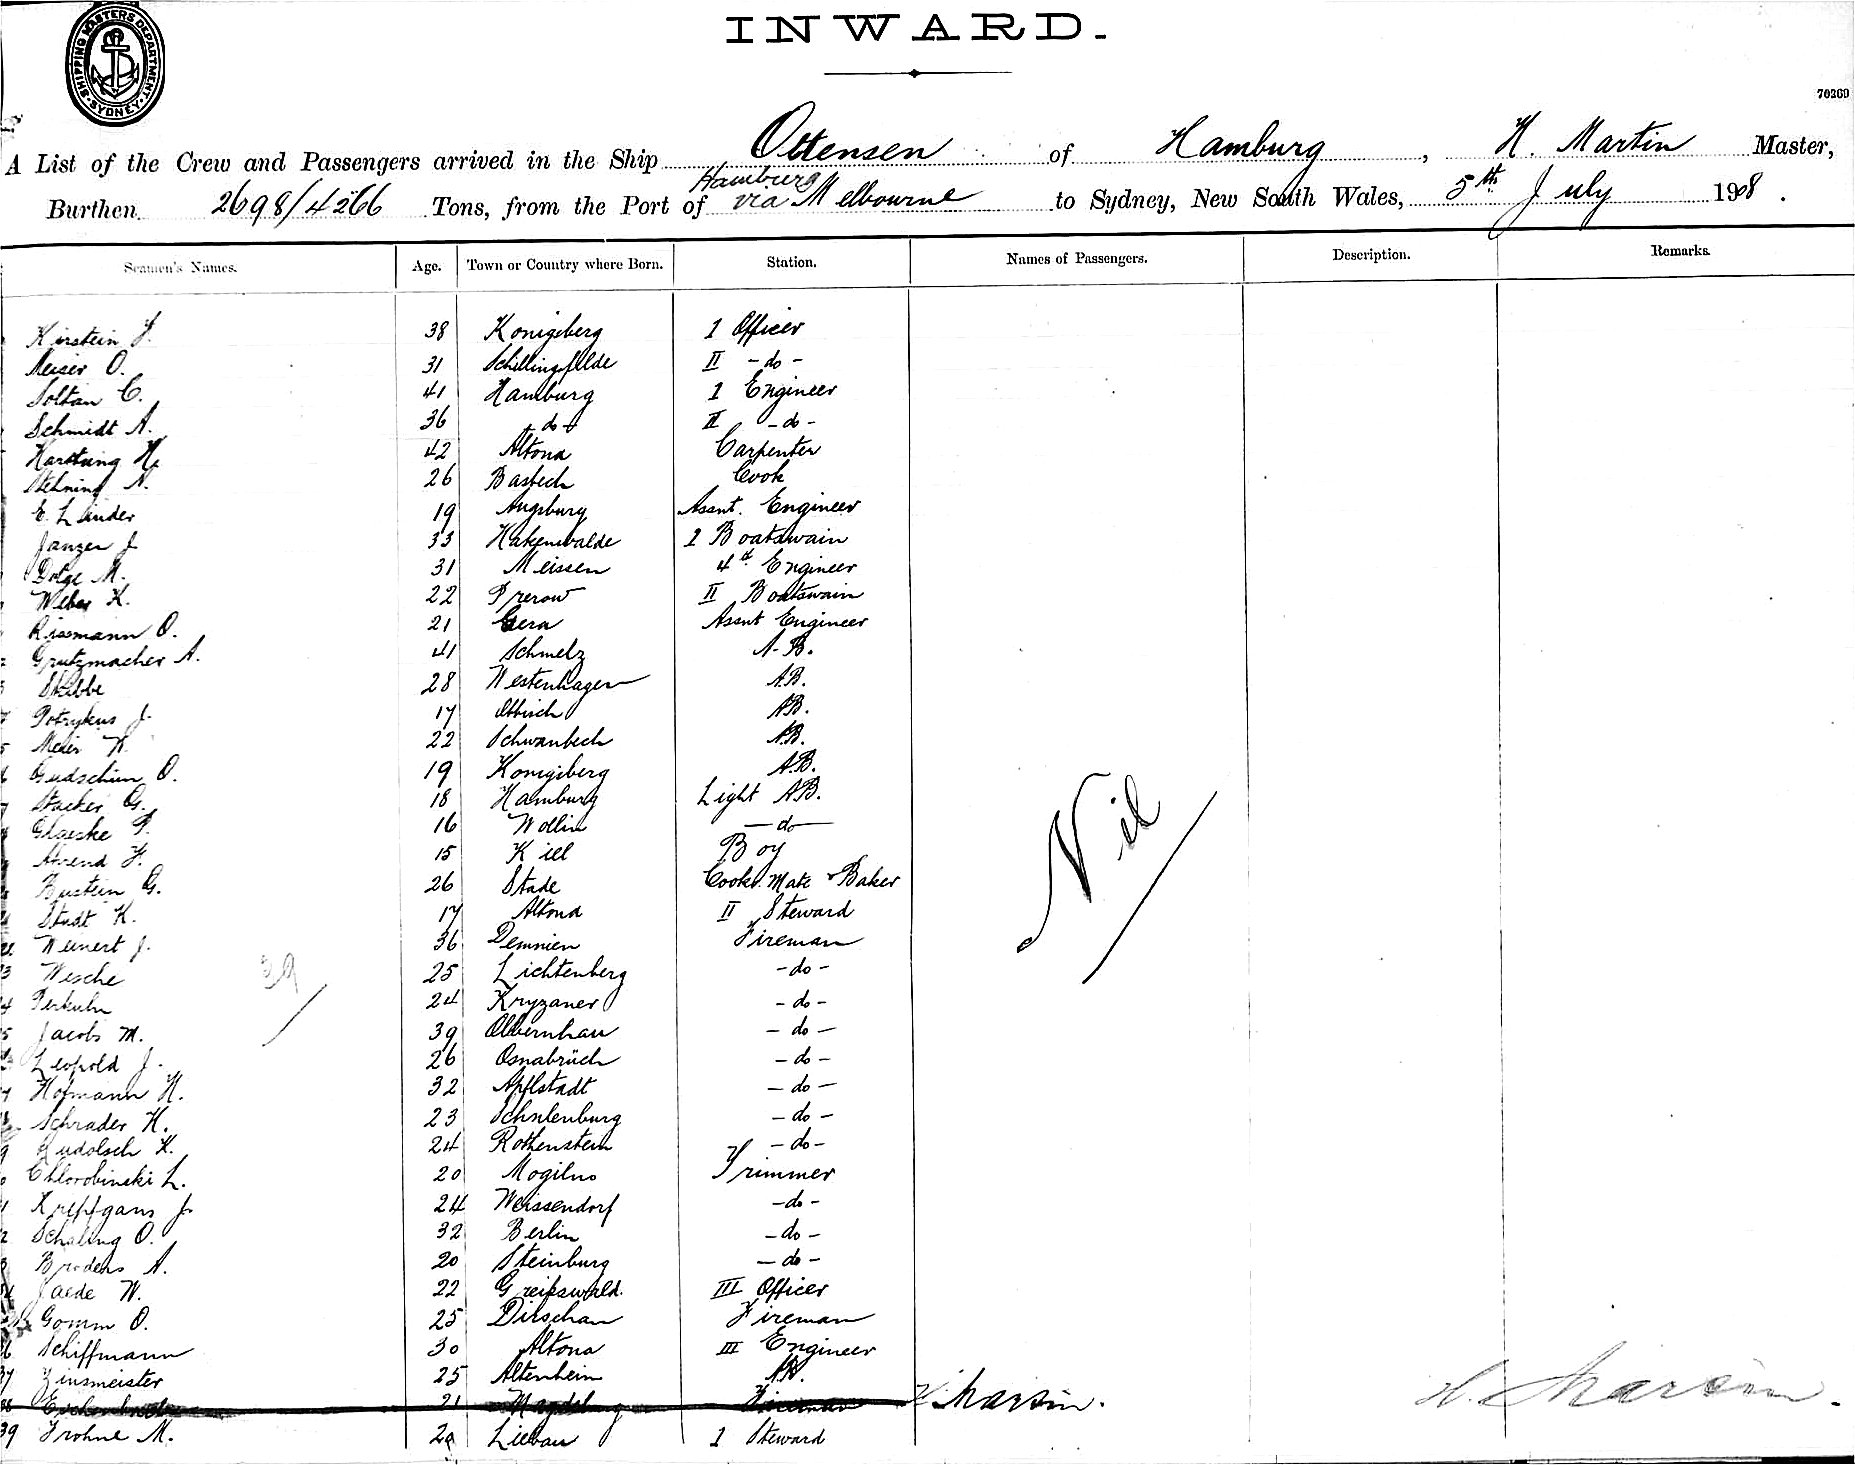 SHIPPING MASTERS DEPARTMENT. SYDNEY.
INWARD.
70269
A List of the Crew and Passengers arrived in the Ship Ottensen of Hamburg, H. Martin Master,
Burthen 2698/4266 Tons, from the Port of Hamburg via Melbourne to Sydney, New South Wales, 5th July 1908.
Seamen's Names. Age. Town or Country where Born. Station. Names of Passengers. Description. Remarks.
Kirstein F. 38 Konigsberg 1 Officer
Meiser O. 31 Schillingsfelde II - do -
Soltau C. 41 Hamburg 1 Engineer
Schmidt A. 36 - do - II - do -
Hartung H. 42 Altona Carpenter
Stehning A. 26 Basbech Cook
E. Linder 19 Augsburg Assnt. Engineer
Janzen J. 33 Hakenwalde 1 Boatswain
Dolge M. 31 Meissen 4th Engineer
Weber K. 22 Prerow II Boatswain
Rissmann O. 21 Gera Assnt Engineer
Grutzmacher A. 41 Schmelz A.B.
Stubbe 28 Westenhagen A.B.
Potrykus J. 17 A.B.
Meier K. 22 Schwanbech A.B.
Gudschun O. 19 Konigsberg A.B.
Stacker G. 18 Hamburg Light A.B.
Glaeske P. 16 Wollin - do -
Arend F. 15 Kiel Boy
Bustein G. 26 Stade Cooks Mate & Baker
Stadt K. 17 Altona II Steward
Weinert J. 36 Demmien Fireman
Wesche 25 Lichtenberg - do -
Perkuhn 24 Kryzaner - do -
Jacobs M. 39 Olbernhau - do -
Leopold J. 26 Osnabrüch - do -
Hofmann H. 32 Apflstadt - do -
Schrader H. 23 Schulenburg - do -
Rudolsch K. 24 Rothenstein - do -
Chlorobinski L. 20 Mogilno Trimmer
Krepfgans J. 24 Weissendorf - do -
Schaling O. 32 Berlin - do -
Broders A. 20 Steinburg - do -
Jaede W. 22 Greifswald. III Officer
Gomm O. 25 Dirschau Fireman
36 Schiffmann 30 Altona III Engineer
37 Zinsmeister 25 Altenhein A.B.
38 21 Magdeburg Fireman H. Martin.
39 Frohne M. Liebau 1 Steward
Nil
39
H. Martin.